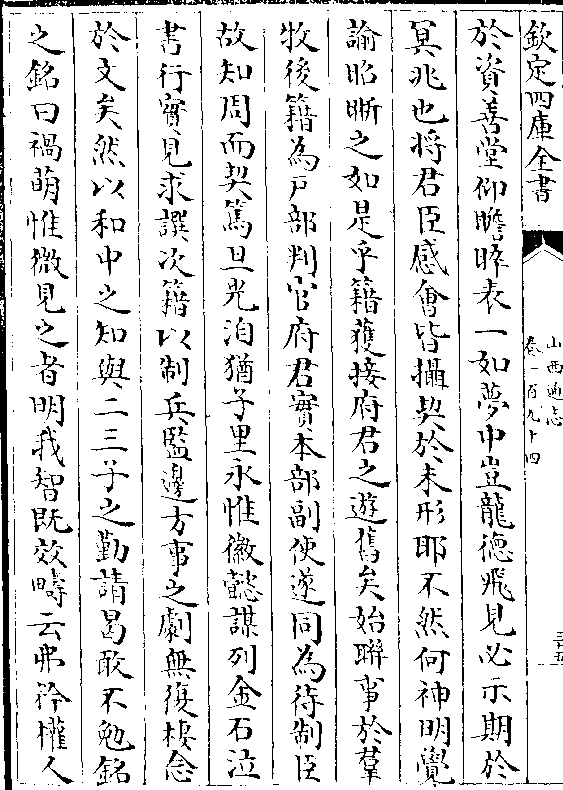 欽定四庫全書
山西通志
卷一百九十四
三十五
於資善堂仰瞻睟表一如夢中豈龍德飛見必示期於
冥兆也將君臣感會皆攝契於未形耶不然何神明覺
諭昭晰之如是乎籍獲接府君之遊舊矣始聯事於羣
牧後籍為戸部判官府君實本部副使遂同為待制臣
故知周而契篤旦光洎猶子里永惟徽懿謀列金石泣
書行實見求譔次籍以制兵監邊方事之劇無復棲念
於文矣然以和中之知與二三子之勤請曷敢不勉銘
之銘曰禍萌惟微見之者明我智既效疇云弗矜權人